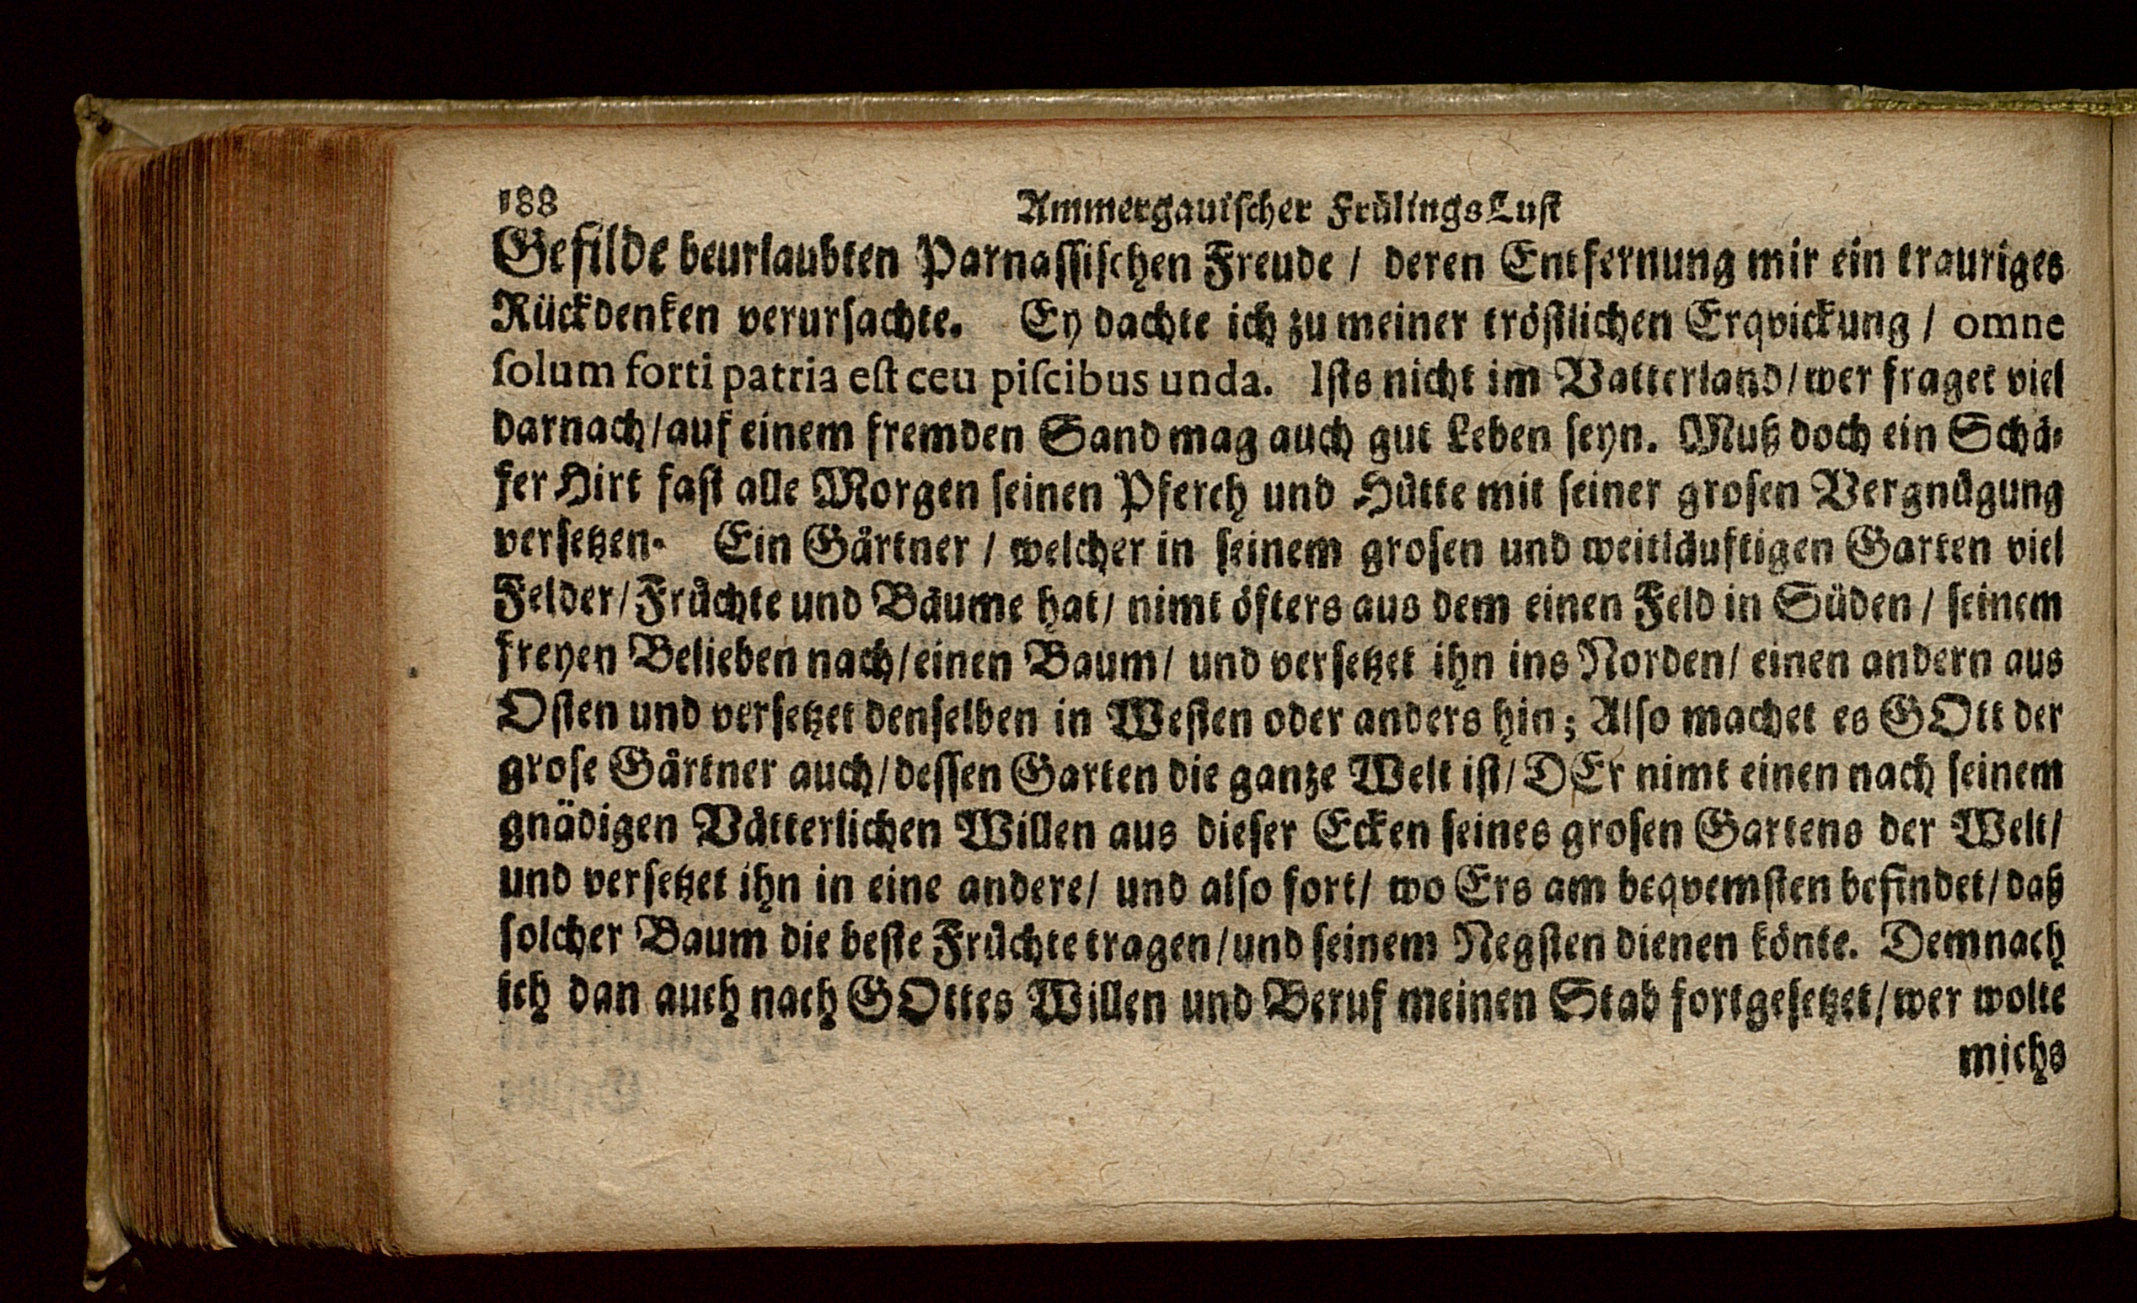 188
Ammergauischer FrülingsLust
Gefilde beurlaubten Parnassischen Freude / deren Entfernung mir ein trauriges
Rückdenken verursachte. Ey dachte ich zu meiner tröstlichen Erqvickung / omne
solum forti patria est ceu piscibus unda. Ists nicht im Vatterland / wer fraget viel
darnach / auf einem fremden Sand mag auch gut Leben seyn. Muß doch ein Schä-
fer Hirt fast alle Morgen seinen Pferch und Hütte mit seiner grosen Vergnügung
versetzen. Ein Gärtner / welcher in seinem grosen und weitläuftigen Garten viel
Felder / Früchte und Bäume hat / nimt öfters aus dem einen Feld in Süden / seinem
freyen Belieben nach / einen Baum / und versetzet ihn ins Norden / einen andern aus
Osten und versetzet denselben in Westen oder anders hin; Also machet es GOtt der
grose Gärtner auch / dessen Garten die ganze Welt ist / DEr nimt einen nach seinem
gnädigen Vätterlichen Willen aus dieser Ecken seines grosen Gartens der Welt /
und versetzet ihn in eine andere / und also fort / wo Ers am beqvemsten befindet / daß
solcher Baum die beste Früchte tragen / und seinem Negsten dienen könte. Demnach
ich dan auch nach GOttes Willen und Beruf meinen Stab fortgesetzet / wer wolte
michs